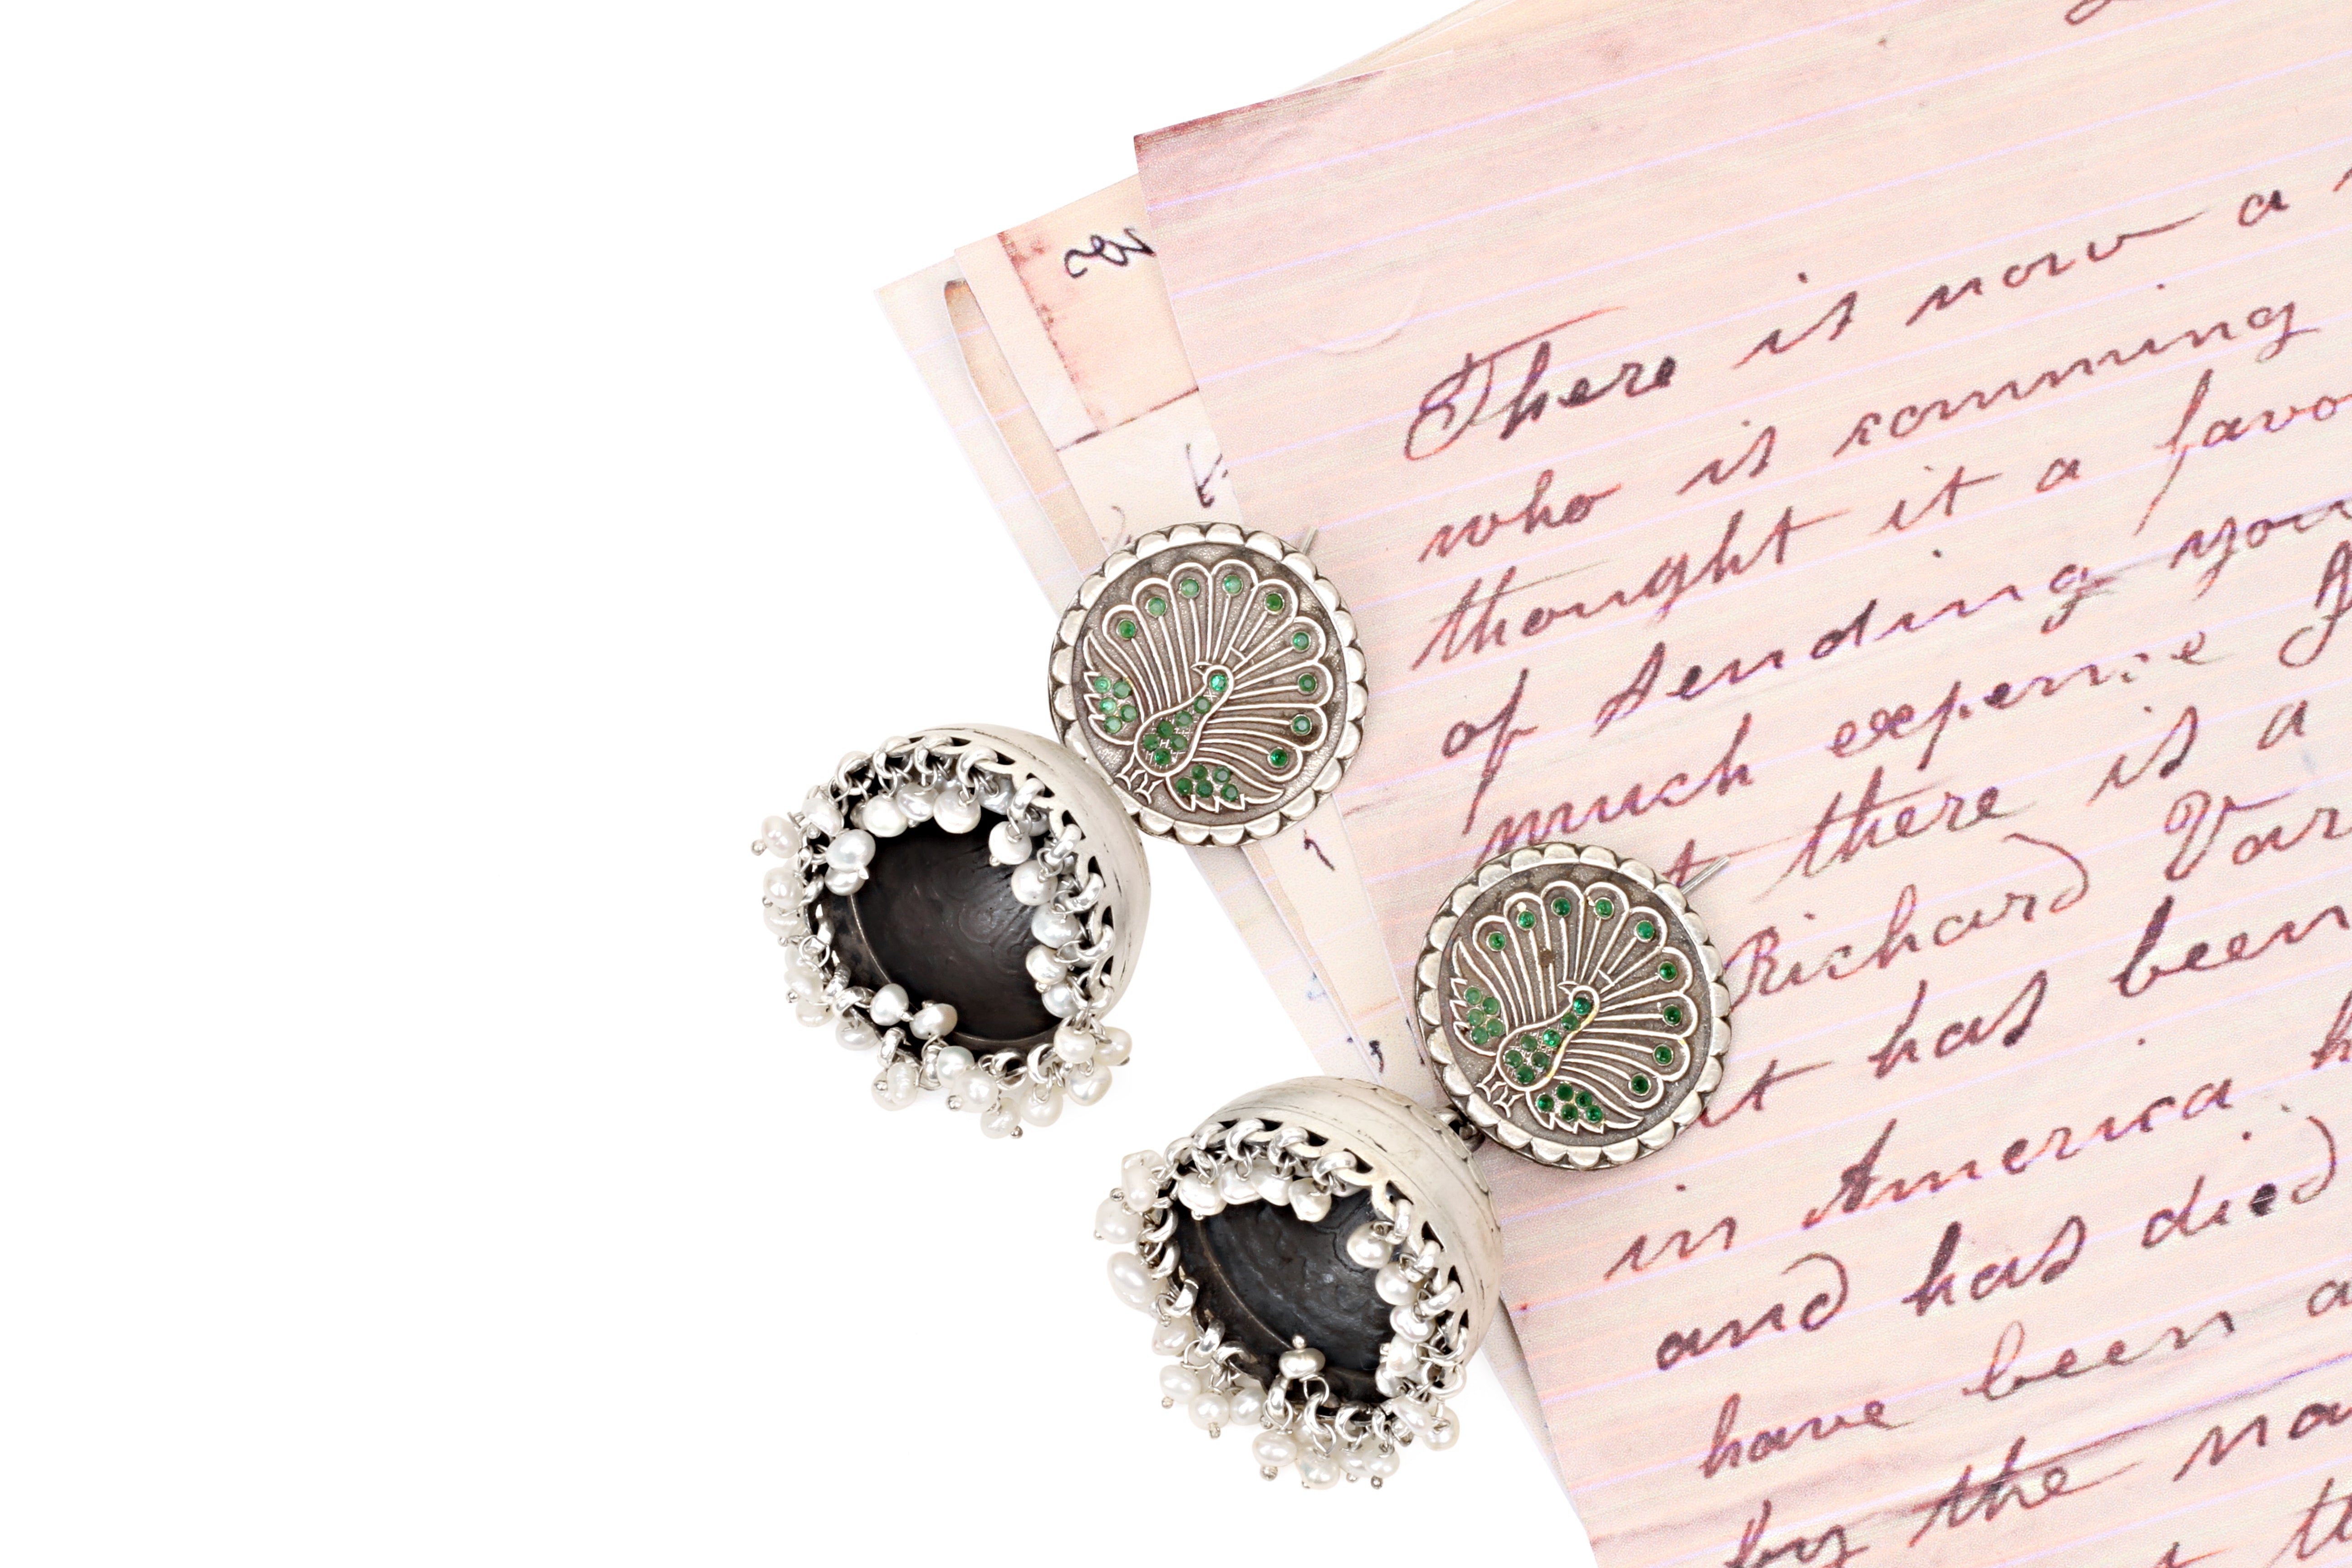 There is now a
who is comming
thought it a favo
of sending you
much expense
t there is a
Richard Var
it has been
in America h
and has died
have been a
by the na